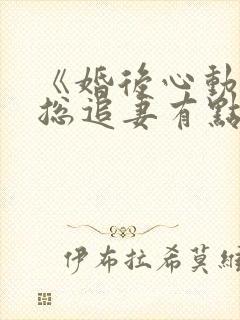 《婚後心動
總追妻有點
伊布拉希莫維